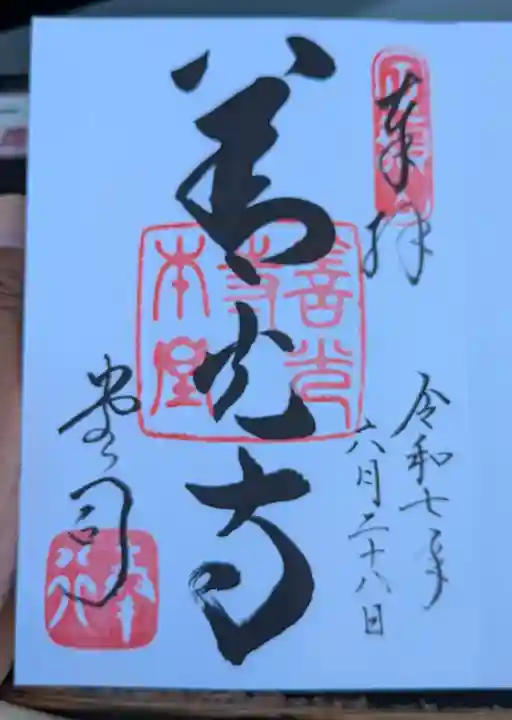 奉拝
令和七年
六月二十八日
善光寺
善光寺本堂
堂司